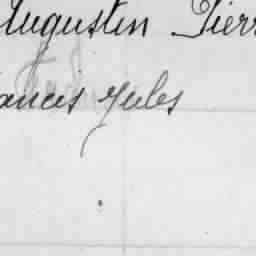 Augustin Pierr
ancis Jules